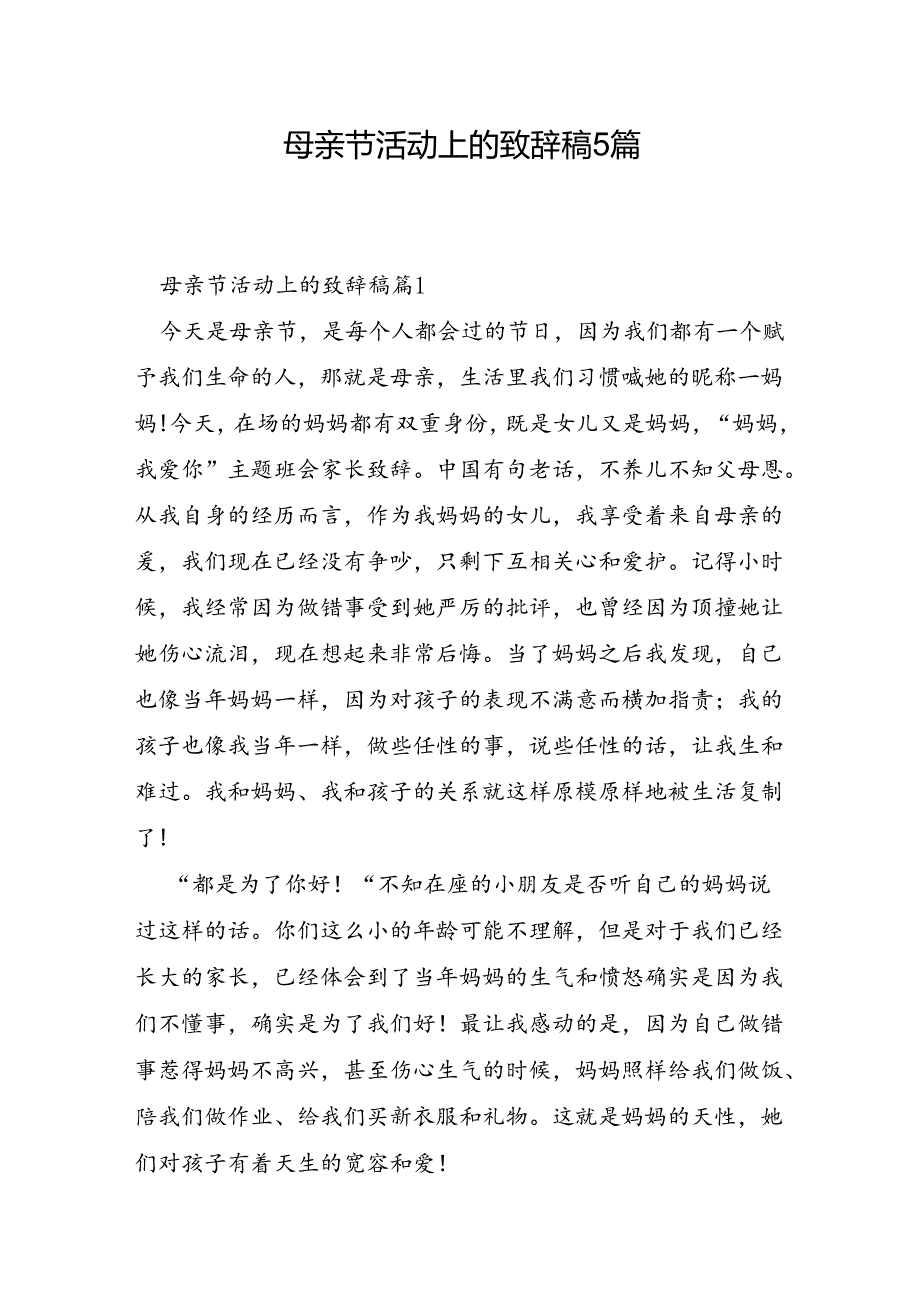 母亲节活动上的致辞稿5篇
母亲节活动上的致辞稿篇1
今天是母亲节，是每个人都会过的节日，因为我们都有一个赋
予我们生命的人，那就是母亲，生活里我们习惯喊她的昵称一妈
妈!今天，在场的妈妈都有双重身份，既是女儿又是妈妈，“妈妈，
我爱你”主题班会家长致辞。中国有句老话，不养儿不知父母恩。
从我自身的经历而言，作为我妈妈的女儿，我享受着来自母亲的
爰，我们现在已经没有争吵，只剩下互相关心和爱护。记得小时
候，我经常因为做错事受到她严厉的批评，也曾经因为顶撞她让
她伤心流泪，现在想起来非常后悔。当了妈妈之后我发现，自己
也像当年妈妈一样，因为对孩子的表现不满意而横加指责；我的
孩子也像我当年一样，做些任性的事，说些任性的话，让我生和
难过。我和妈妈、我和孩子的关系就这样原模原样地被生活复制
了!
“都是为了你好！“不知在座的小朋友是否听自己的妈妈说
过这样的话。你们这么小的年龄可能不理解，但是对于我们已经
长大的家长，已经体会到了当年妈妈的生气和愤怒确实是因为我
们不懂事，确实是为了我们好！最让我感动的是，因为自己做错
事惹得妈妈不高兴，甚至伤心生气的时候，妈妈照样给我们做饭、
陪我们做作业、给我们买新衣服和礼物。这就是妈妈的天性，她
们对孩子有着天生的宽容和爱！